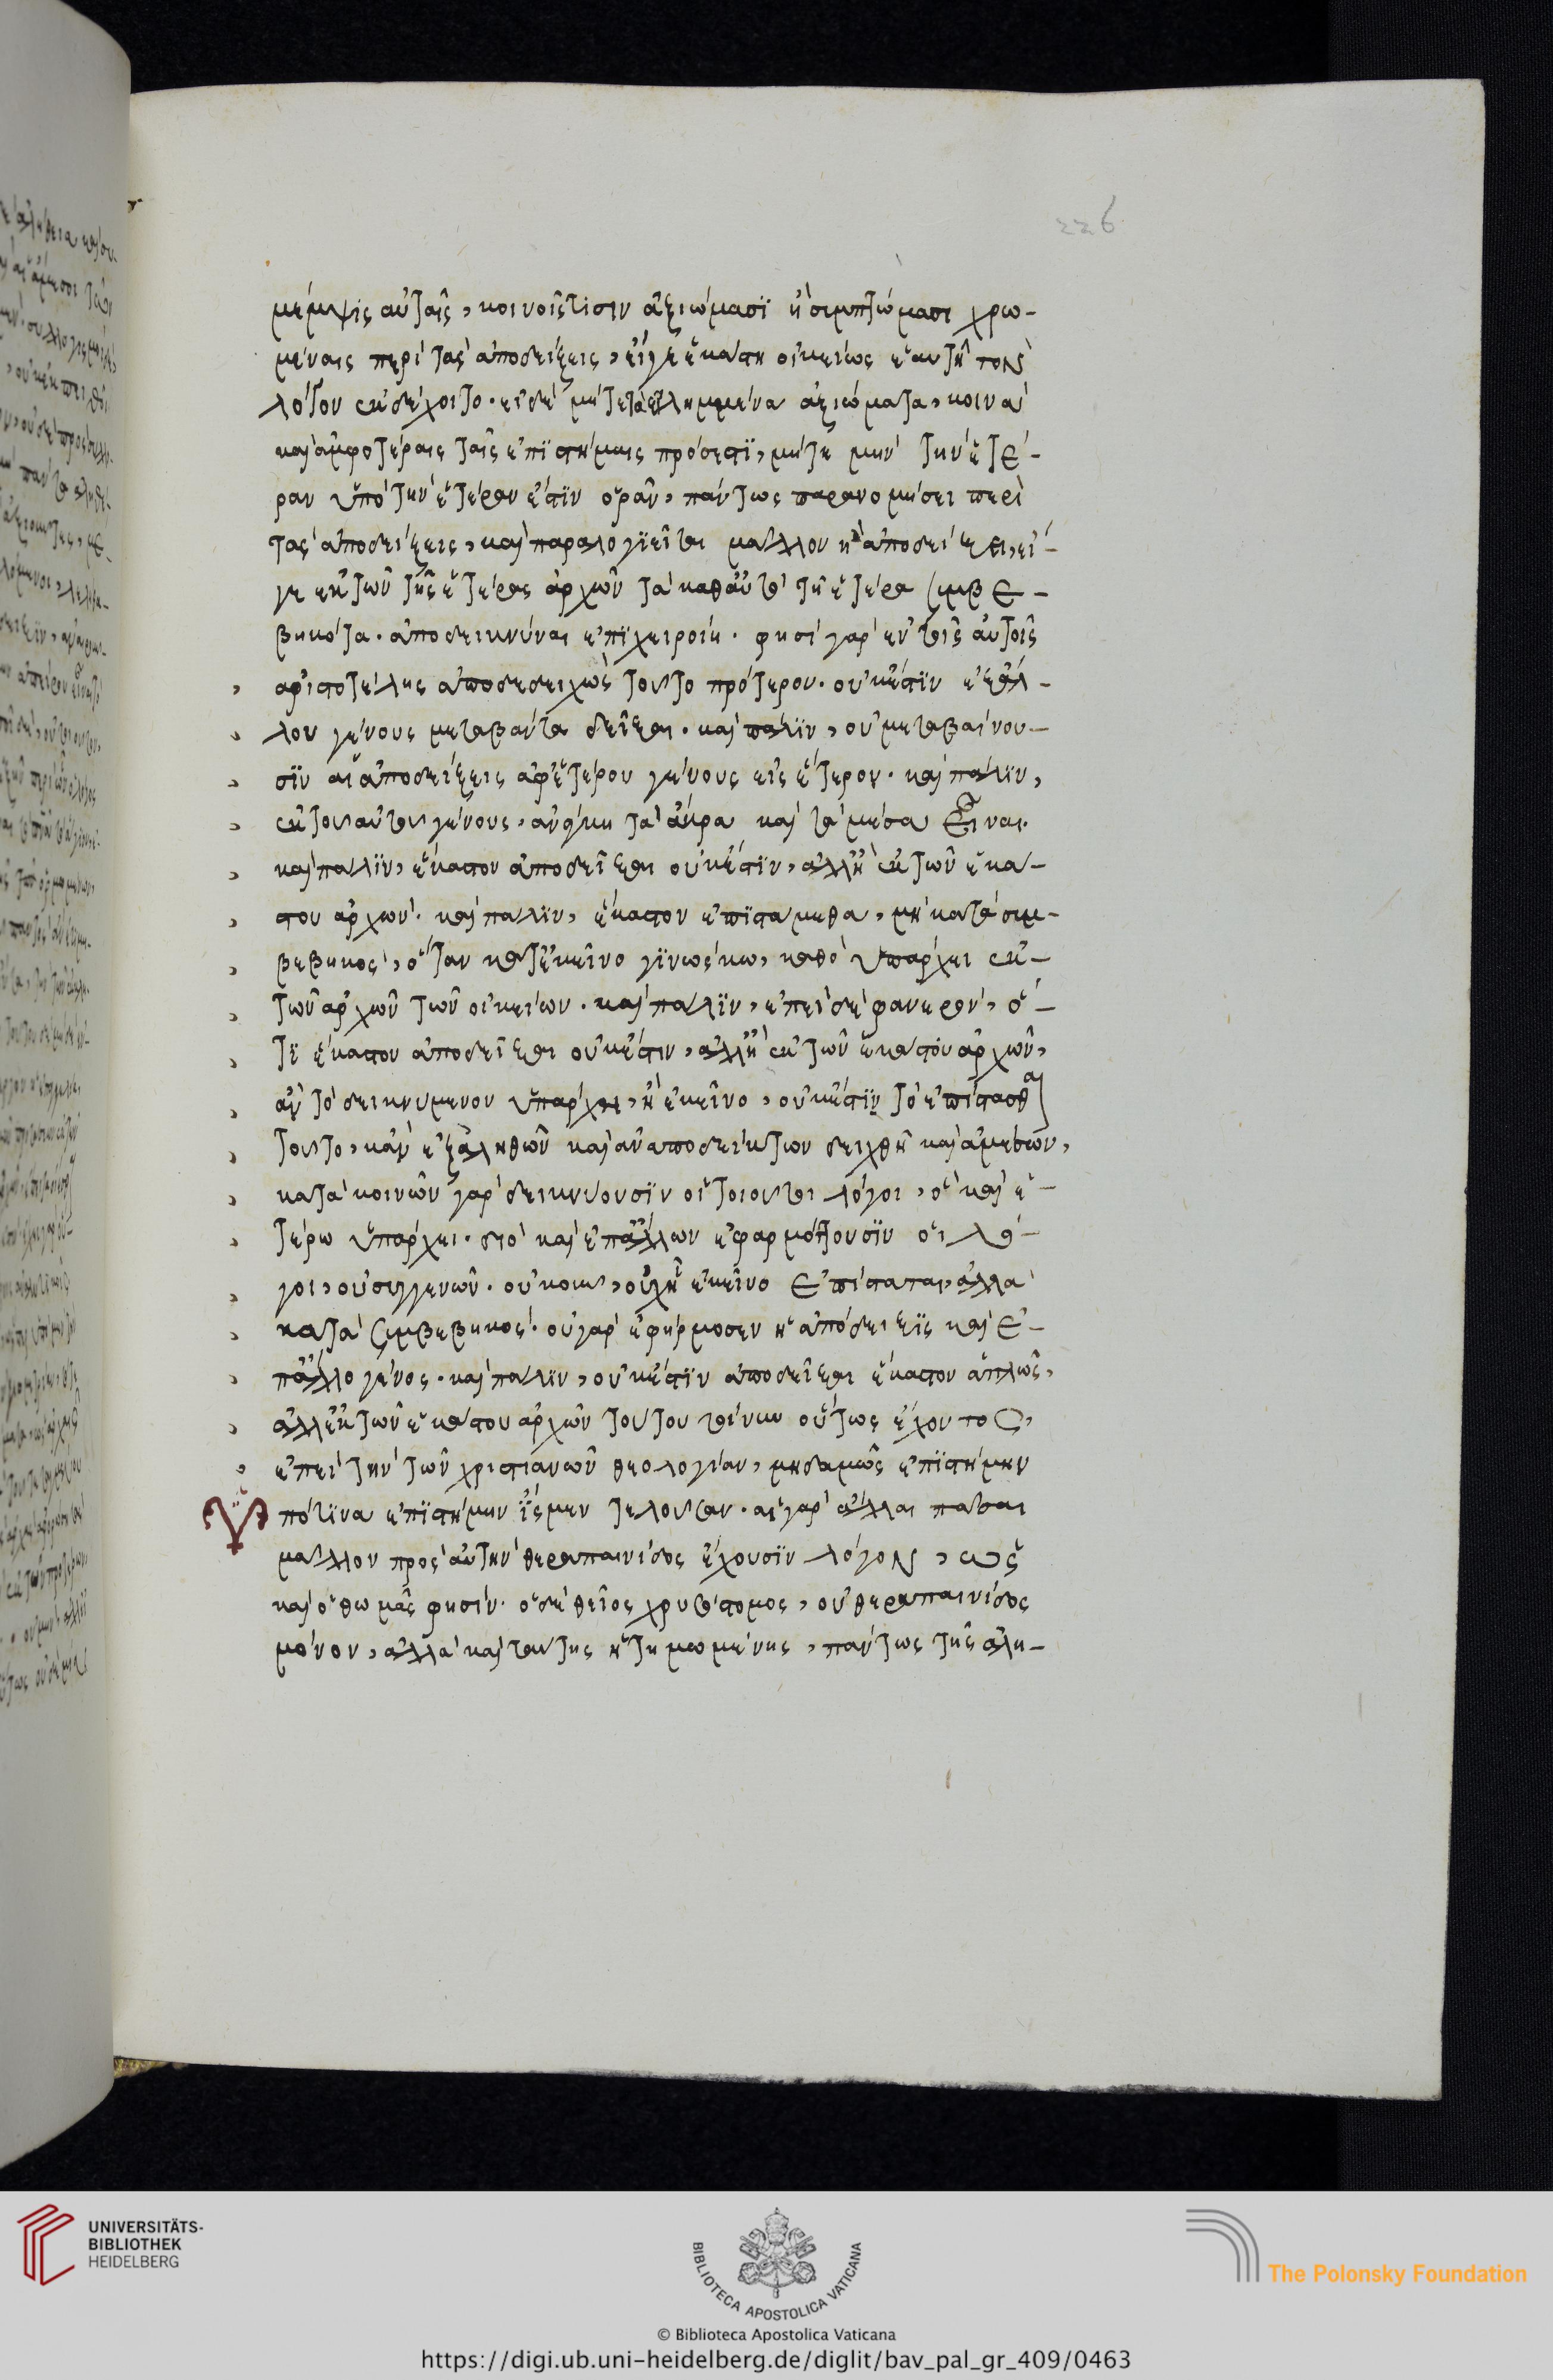 226
μέμψις αὐταῖς, κοινοῖς τισιν ἀξιώμασι ἢ συμπτώμασι χρω-
μέναις περὶ τὰς ἀποδείξεις, εἴγε ἑκάστη οἰκείως ἑαυτῇ τὸν
λόγον ἐκδέχοιτο. εἰ δὲ μήτε τὰ εἰλημμένα ἀξιώματα, κοινὰ
καὶ ἀμφοτέραις ταῖς ἐπιστήμαις πρόσεστι, μήτε μὴν τὴν ἑτέ-
ραν ὑπὸ τὴν ἑτέραν ἐστὶν ὁρᾶν, πάντως παρανομήσει περὶ
τὰς ἀποδείξεις, καὶ παραλογιεῖται μᾶλλον ἢ ἀποδείξει, εἴ-
γε ἐκ τῶν τῆς ἑτέρας ἀρχῶν τὰ καθαὑτὸ τῇ ἑτέρα συμβε-
βηκότα. ἀποδεικνύναι ἐπιχειροίη. φησὶ γὰρ ἐν τοῖς αὐτοῖς
ἀριστοτέλης ἀποδεδειχὼς τοῦτο πρότερον. οὐκ ἔστιν ἐξ ἄλ-
λου γένους μεταβάντα δεῖξαι. καὶ πάλιν, οὐ μεταβαίνου-
σιν αἱ ἀποδείξεις ἀφ ἑτέρου γένους εἰς ἕτερον. καὶ πάλιν,
ἐκ τοῦ αὐτοῦ γένους, ἀνάγκη τὰ ἄκρα καὶ τὰ μέσα εἶναι.
καὶ πάλιν, ἕκαστον ἀποδεῖξαι οὐκ ἔστιν, ἀλλ ἢ ἐκ τῶν ἑκά-
στου ἀρχῶν. καὶ πάλιν, ἕκαστον ἐπιστάμεθα, μὴ κατὰ συμ-
βεβηκὸς, ὅταν κατ ἐκεῖνο γινώσκω, καθὸ ὑπάρχει ἐκ
τῶν ἀρχῶν τῶν οἰκείων. καὶ πάλιν, ἐπεὶ δὲ φανερὸν, ὅ-
τι ἕκαστον ἀποδεῖξαι οὐκ ἔστιν, ἀλλ ἢ ἐκ τῶν ἑκάστου ἀρχῶν,
ἂν τὸ δεικνύμενον ὑπάρχει, ἢ ἐκεῖνο, οὐκ ἔστιν τὸ ἐπίστασθαι
τοῦτο, κἂν ἐξ ἀληθῶν καὶ ἀναποδείκτων δειχθῇ καὶ ἀμέσων,
κατὰ κοινῶν γὰρ δεικνύουσιν οἱ τοιοῦτοι λόγοι, ὃ καὶ ἑ-
τέρω ὑπάρχει. διὸ καὶ ἐπ ἄλλων ἐφαρμόττουσιν οἱ λό-
γοι, οὐ συγγενῶν. οὐκοῦν, οὐχ ᾗ ἐκεῖνο ἐπίσταται, ἀλλὰ
κατὰ συμβεβηκὸς. οὐ γὰρ ἐφήρμοσεν ἡ ἀπόδειξις καὶ ἐ-
π ἄλλο γένος. καὶ πάλιν, οὐκ ἔστιν ἀποδεῖξαι ἕκαστον ἁπλῶς,
ἀλλ ἐκ τῶν ἑκάστου ἀρχῶν τούτου τοίνυν οὕτως ἔχοντος,
ἐπεὶ τὴν τῶν χριστιανῶν θεολογίαν, μηδαμῶς ἐπιστήμην
Ὑπό τινα ἐπιστήμην ἴσμεν τελοῦσαν. αἱ γὰρ ἄλλαι πᾶσαι
μᾶλλον πρὸς αὐτὴν θεραπαινίδος ἔχουσιν λόγον, ὥς
καὶ ὁ θωμᾶς φησίν. ὁ δὲ θεῖος χρυσόστομος, οὐ θεραπαινίδος
μόνον, ἀλλὰ καὶ ταύτης ἠτιμωμένης, πάντως τῆς ἀλη-
UNIVERSITÄTS-
BIBLIOTHEK
HEIDELBERG
BIBLIOTECA APOSTOLICA VATICANA
The Polonsky Foundation
© Biblioteca Apostolica Vaticana
https://digi.ub.uni-heidelberg.de/diglit/bav_pal_gr_409/0463